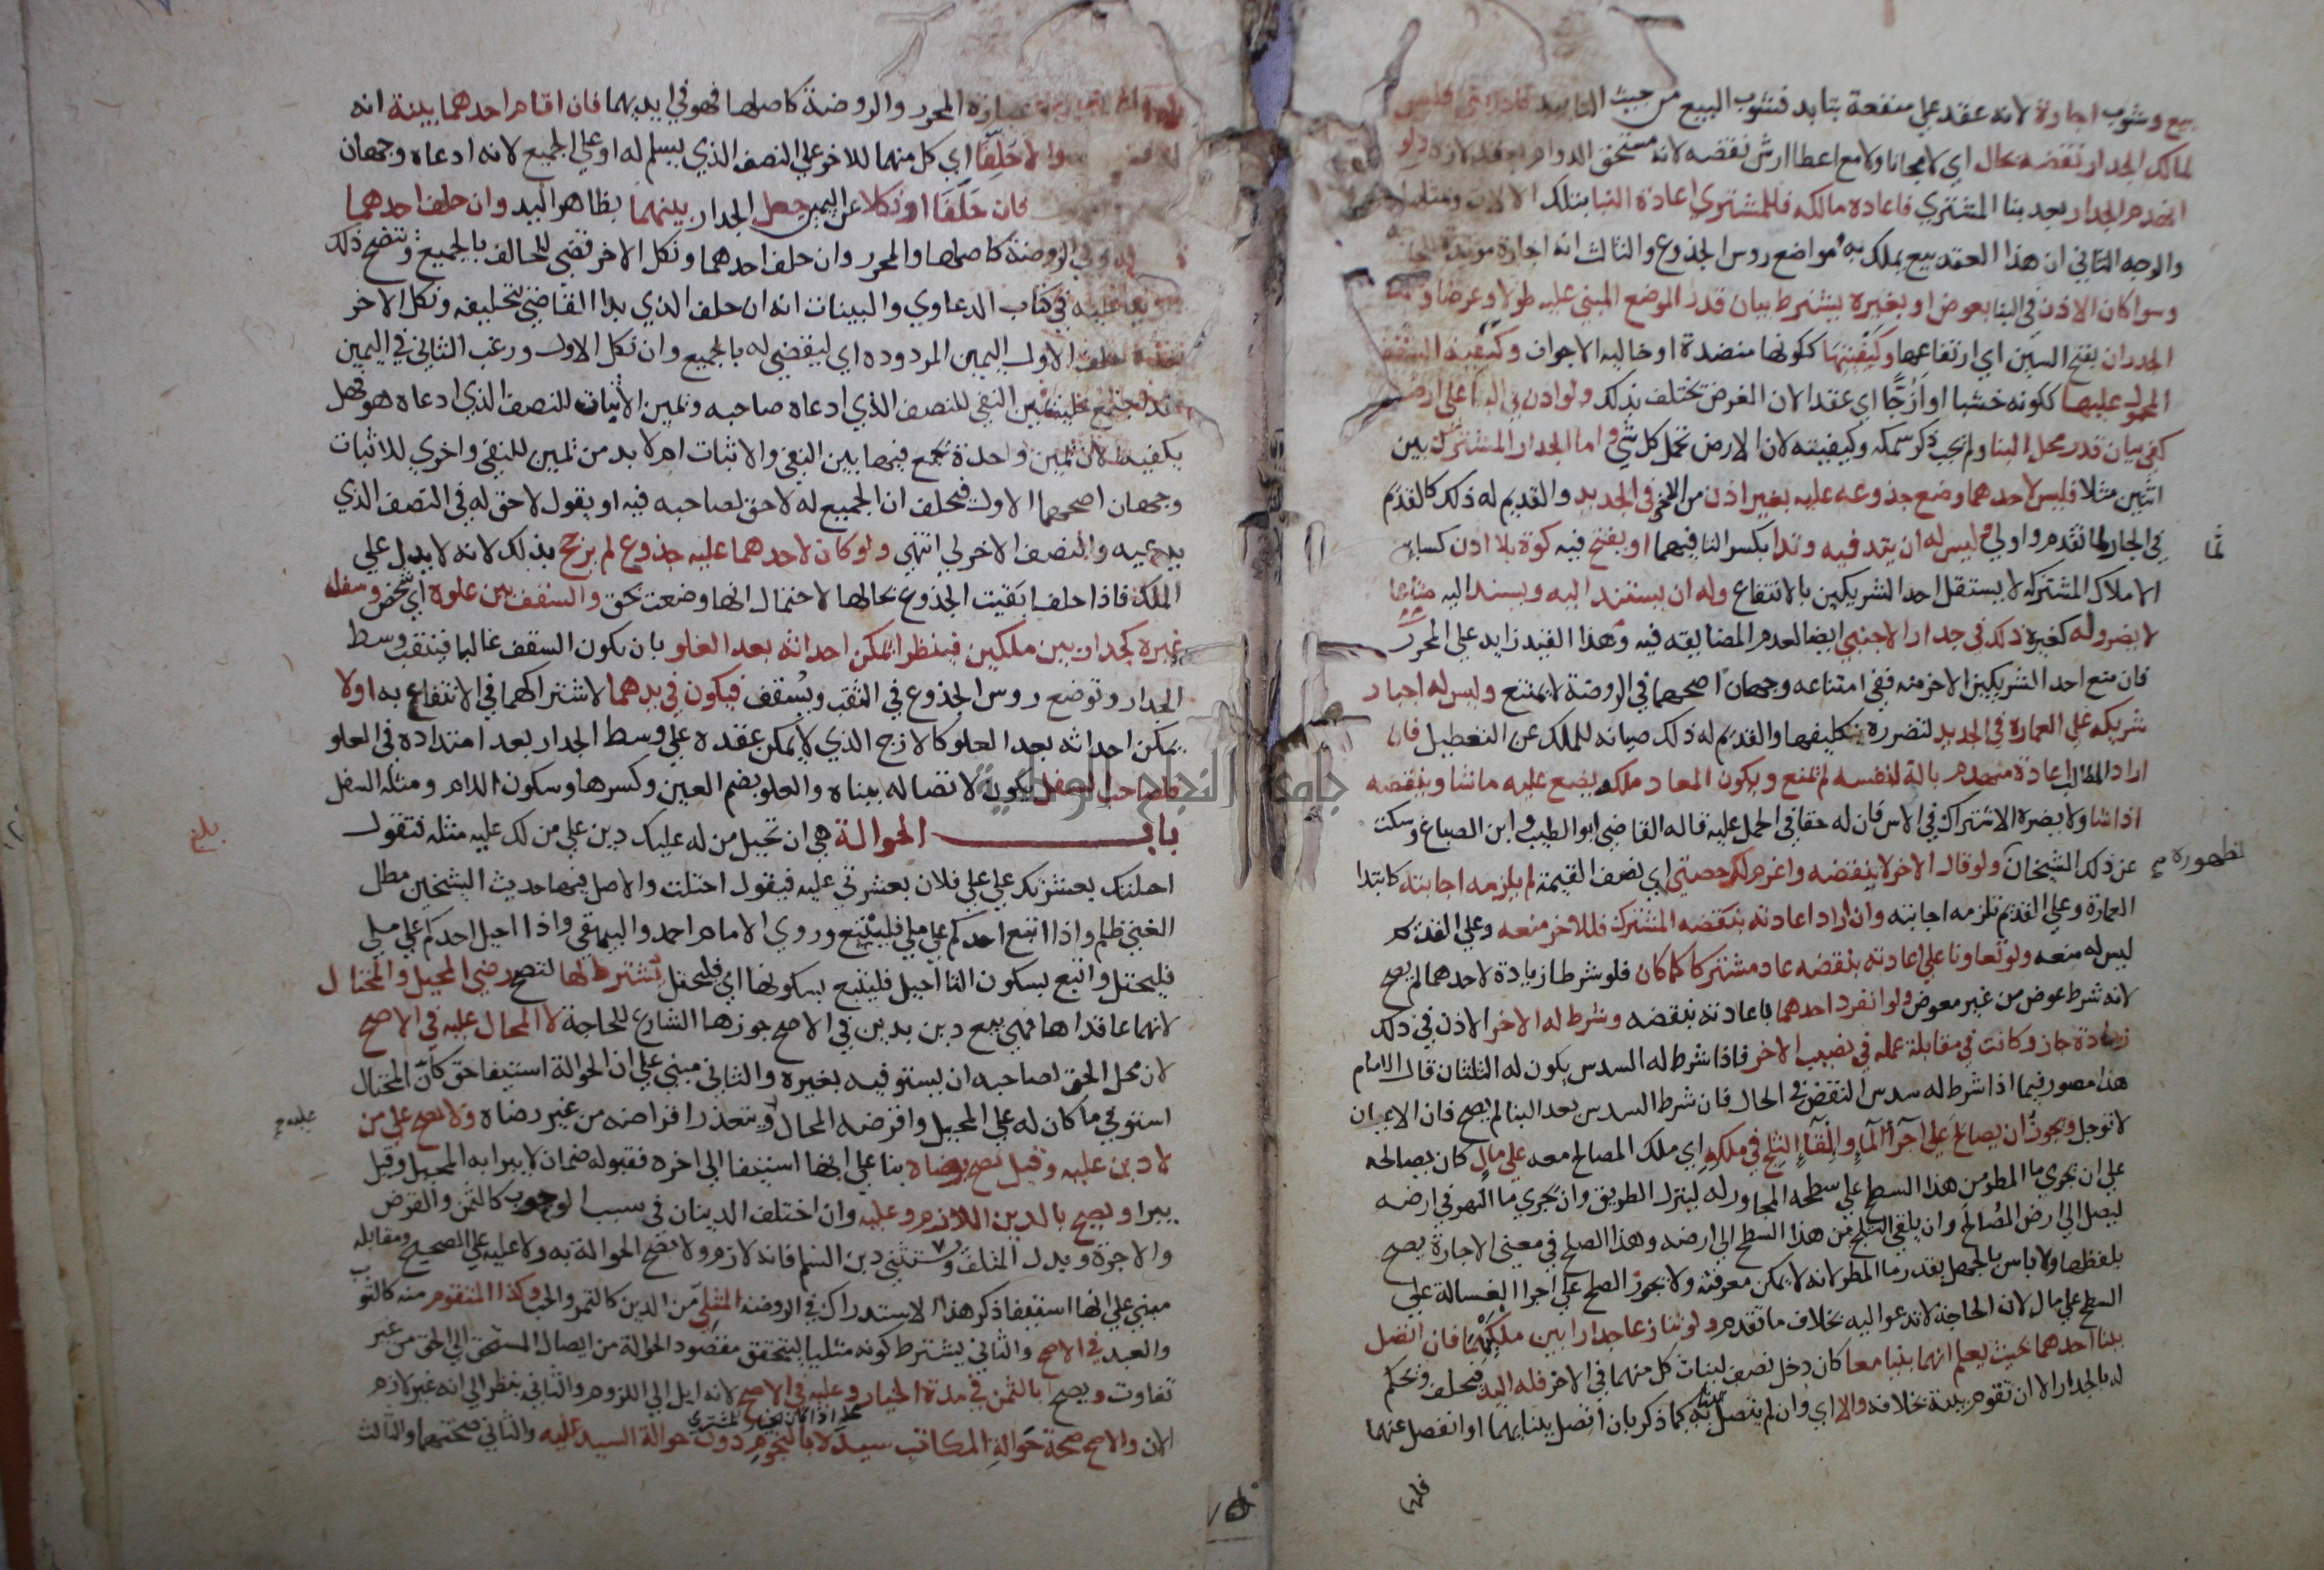 بيع وشوب اجارة لانه عقد علي منفعة بتابد فشوب البيع من حيث التابيد فاذا بني فليس
لمالك الجدار نقضه بحال اي لا مجانا ولا مع اعطا ارش نقضه لانه مستحق الدوام بعقد لازم ولو
انهدم الجدار بعد بنا المشتري فاعاده مالكه فللمشتري اعادة البنا بتلك الالات وبمثلها
والوجه الثاني ان هذا العقد بيع يملك به مواضع روس الجذوع والثالث انه اجارة موبدة
وسوا كان الاذن في البنا بعوض او بغيره يشترط بيان قدر الموضع المبني عليه طولا وعرضا وسمك
الجدران بفتح السين اي ارتفاعها وكيفيتها ككونها منضدة او خالية الاجواف وكيفية السقف
المحمول عليها ككونه خشبا او ازجا اي عقدا لان الغرض تختلف بذلك ولو اذن في البنا علي ارضه
كفي بيان قدر محل البنا ولم يجب ذكر سمكه وكيفيته لان الارض تحمل كل شي واما الجدار المشترك بين
اثنين مثلا فليس لاحدهما وضع جذوعه عليه بغير اذن من الاخر في الجديد والقديم له ذلك كالقديم
في الجار لما تقدم واولي وليس له ان يتد فيه وتدا بكسر التا فيهما او يفتح فيه كوة بلا اذن كساير
الاملاك المشتركة لا يستقل احد الشريكين بالانتفاع وله ان يستند اليه ويسند اليه متاعا
لا يضر وله كغيره ذلك في جدار الاجنبي ايضا لعدم المضايقه فيه وهذا القيد زايد علي المحرر
فان منع احد الشريكين الاخر منه ففي امتناعه وجهان اصحهما في الروضة لا يمتنع وليس له اجبار
شريكه علي العمارة في الجديد لتضرره بتكليفها والقديم له ذلك صيانة للملك عن التعطيل فان
اراد الطالب اعادة منهدم بالة لنفسه لم يمنع ويكون المعاد ملكه يضع عليه ما شا وينقضه
اذا شا ولا يضره الاشتراك في الاس فان له حقا في الحمل عليه قاله القاضي ابو الطيب وابن الصباغ وسكت
عن ذلك الشيخان ولو قال الاخر لا ينقضه واغرم لك حصتي اي نصف القيمة لم يلزمه اجابته كابتدا
العمارة وعلي القديم تلزمه اجابته وان اراد اعادته بنقضه المشترك فللاخر منعه وعلي القديم
ليس له منعه ولو تعاونا علي اعادته بنقضه عاد مشتركا كما كان فلو شرطا زيادة لاحدهما لم يصح
لانه شرط عوض من غير معوض ولو انفرد احدهما باعادته بنقضه وشرط له الاخر الاذن في ذلك
زيادة جاز وكانت في مقابلة عمله في نصيب الاخر فاذا شرط له السدس يكون له الثلثان قال الامام
هذا مصور فيما اذا شرط له سدس النقض في الحال فان شرط السدس بعد البنا لم يصح فان الاعيان
لا توجل ويجوز ان يصالح علي اجرا الما والقا الثلج في ملكه اي ملك المصالح معه علي مال كان يصالحه
علي ان يجري ما المطر من هذا السطح علي سطحه المجاور له لينزل الطريق وان يجري ما النهر في ارضه
ليصل الي ارض المصالح وان يلقي الثلج من هذا السطح الي ارضه وهذا الصلح في معني الاجارة يصح
بلفظها ولا باس بالجهل بقدر ما المطر لانه لا يمكن معرفته ولا يجوز الصلح علي اجرا الغسالة علي
السطح علي مال لان الحاجة لا تدعو اليه بخلاف ما تقدم ولو تنازعا جدارا بين ملكيهما فان اتصل
ببنا احدهما بحيث يعلم انهما بنيا معا كان دخل نصف لبنات كل منهما في الاخر فله اليد فيحلف ويحكم
له بالجدار الا ان تقوم بينة بخلافه والا اي وان لم يتصل ببنايه كما ذكر بان اتصل ببنايهما او انفصل عنهما
فلهما
ثما
تطهوره
المحرر والروضة كاصلها فهو في ايديهما فان اقام احدهما بينة انه
والا حلفا اي كل منهما للاخر علي النصف الذي يسلم له او علي الجميع لانه ادعاه وجهان
فان حلفا او نكلا عن اليمين جعل الجدار بينهما بظاهر اليد وان حلف احدهما
وفي الروضة كاصلها والمحرر وان حلف احدهما ونكل الاخر قضي للحالف بالجميع وتتضح ذلك
في كتاب الدعاوي والبينات انه ان حلف الذي بدا القاضي بتحليفه ونكل الاخر
حلف الاول اليمين المردوده اي ليقضي له بالجميع وان نكل الاول ورغب الثاني في اليمين
فقد اجتمع عليه يمين النفي للنصف الذي ادعاه صاحبه ويمين الاثبات للنصف الذي ادعاه هو فهل
يكفيه الان يمين واحدة تجمع فيها بين النفي والاثبات ام لا بد من يمين للنفي واخري للاثبات
وجهان اصحهما الاول فيحلف ان الجميع له لا حق لصاحبه فيه او يقول لا حق له في النصف الذي
يدعيه والنصف الاخر لي انتهي ولو كان لاحدهما عليه جذوع لم يرجح بذلك لانه لا يدل علي
الملك فاذا حلفا بقيت الجذوع بحالها لاحتمال انها وضعت بحق والسقف بين علوه اي شخص وسفل
غيره كجدار بين ملكين فينظر ايمكن احداثه بعد العلو بان يكون السقف عاليا فينقب وسط
الجدار وتوضع روس الجذوع في الثقب ويسقف فيكون في يدهما لاشتراكهما في الانتفاع به اولا
يمكن احداثه بعد العلو كالازج الذي لا يمكن عقده علي وسط الجدار بعد امتداده في العلو
فلصاحب السفل يكون لاتصاله ببناه والعلو بضم العين وكسرها وسكون اللام ومثله السفل
باب الحوالة هي ان تحيل من له عليك دين علي من لك عليه مثله فتقول
احلتك بعشرتك علي علي فلان بعشرتي عليه فيقول احتلت والاصل فيها حديث الشيخين مطل
الغني ظلم واذا اتبع احدكم علي ملي فليتبع وروي الامام احمد والبيهقي واذا احيل احدكم علي ملي
فليحتل واتبع بسكون التا احيل فليتبع بسكونها اي فليحتل يشترط لها لتصح رضي المحيل والمحتال
لانهما عاقداها فهي بيع دين بدين في الاصح جوزها الشارع للحاجة لا المحال عليه في الاصح
لان محل الحق لصاحبه ان يستوفيه بغيره والثاني مبني علي ان الحوالة استيفا حق كان المحتال
استوفي ما كان له علي المحيل واقرضه المحال ويتعذر اقراضه من غير رضاه ولا تصح علي من
لا دين عليه وقيل تصح برضاه بنا علي انها استيفا الي اخره فقبوله ضمان لا يبرا به المحيل وقيل
يبرا ويصح بالدين اللازم وعليه وان اختلف الدينان في سبب الوجوب كالثمن والقرض
والاجرة وبدل المتلف ويستثني دين السلم فانه لازم ولا تصح الحوالة به ولا عليه علي الصحيح ومقابله
مبني علي انها استيفا ذكر هذا الاستدراك في الروضة المثلي من الدين كالتمر والحب وكذا المتقوم منه كالثوب
والعبد في الاصح والثاني يشترط كونه مثليا ليتحقق مقصود الحوالة من ايصال المستحق الي الحق من غير
تفاوت ويصح بالثمن في مدة الخيار وعليه في الاصح لانه ايل الي اللزوم والثاني ينظر الي انه غير لازم
الان والاصح صحة حوالة المكاتب سيده بالنجوم دون حوالة السيد عليه والثاني صحتهما والثالث
بلغ
عليه
جامعة النجاح الوطنية